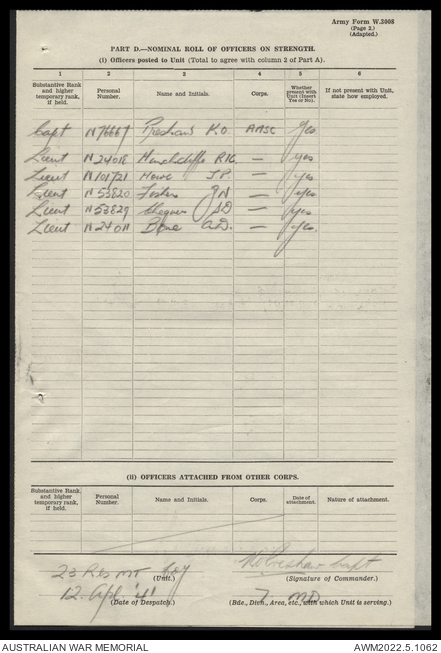 Army Form W.3008
(Page 2.)
(Adapted.)
PART D.—NOMINAL ROLL OF OFFICERS ON STRENGTH.
(i) Officers posted to Unit (Total to agree with column 2 of Part A).
1 2 3 4 5 6
Substantive Rank and higher temporary rank, if held. Personal Number. Name and Initials. Corps. Whether present with Unit (Insert Yes or No). If not present with Unit, state how employed.
Capt N76667 K.O. AASC Yes
Lieut N24018 Hinchcliffe R.K. — yes
Lieut N101721 Howe J.P. — yes
Lieut N53820 — yes
Lieut N53829 — yes
Lieut N24011 A.D. — yes.
(ii) OFFICERS ATTACHED FROM OTHER CORPS.
Substantive Rank and higher temporary rank, if held. Personal Number. Name and Initials. Corps. Date of attachment. Nature of attachment.
23 Res MT Coy Capt
(Unit.) (Signature of Commander.)
12 Apl '41 7 MD
(Date of Despatch.) (Bde., Divn., Area, etc., with which Unit is serving.)
AUSTRALIAN WAR MEMORIAL AWM2022.5.1062